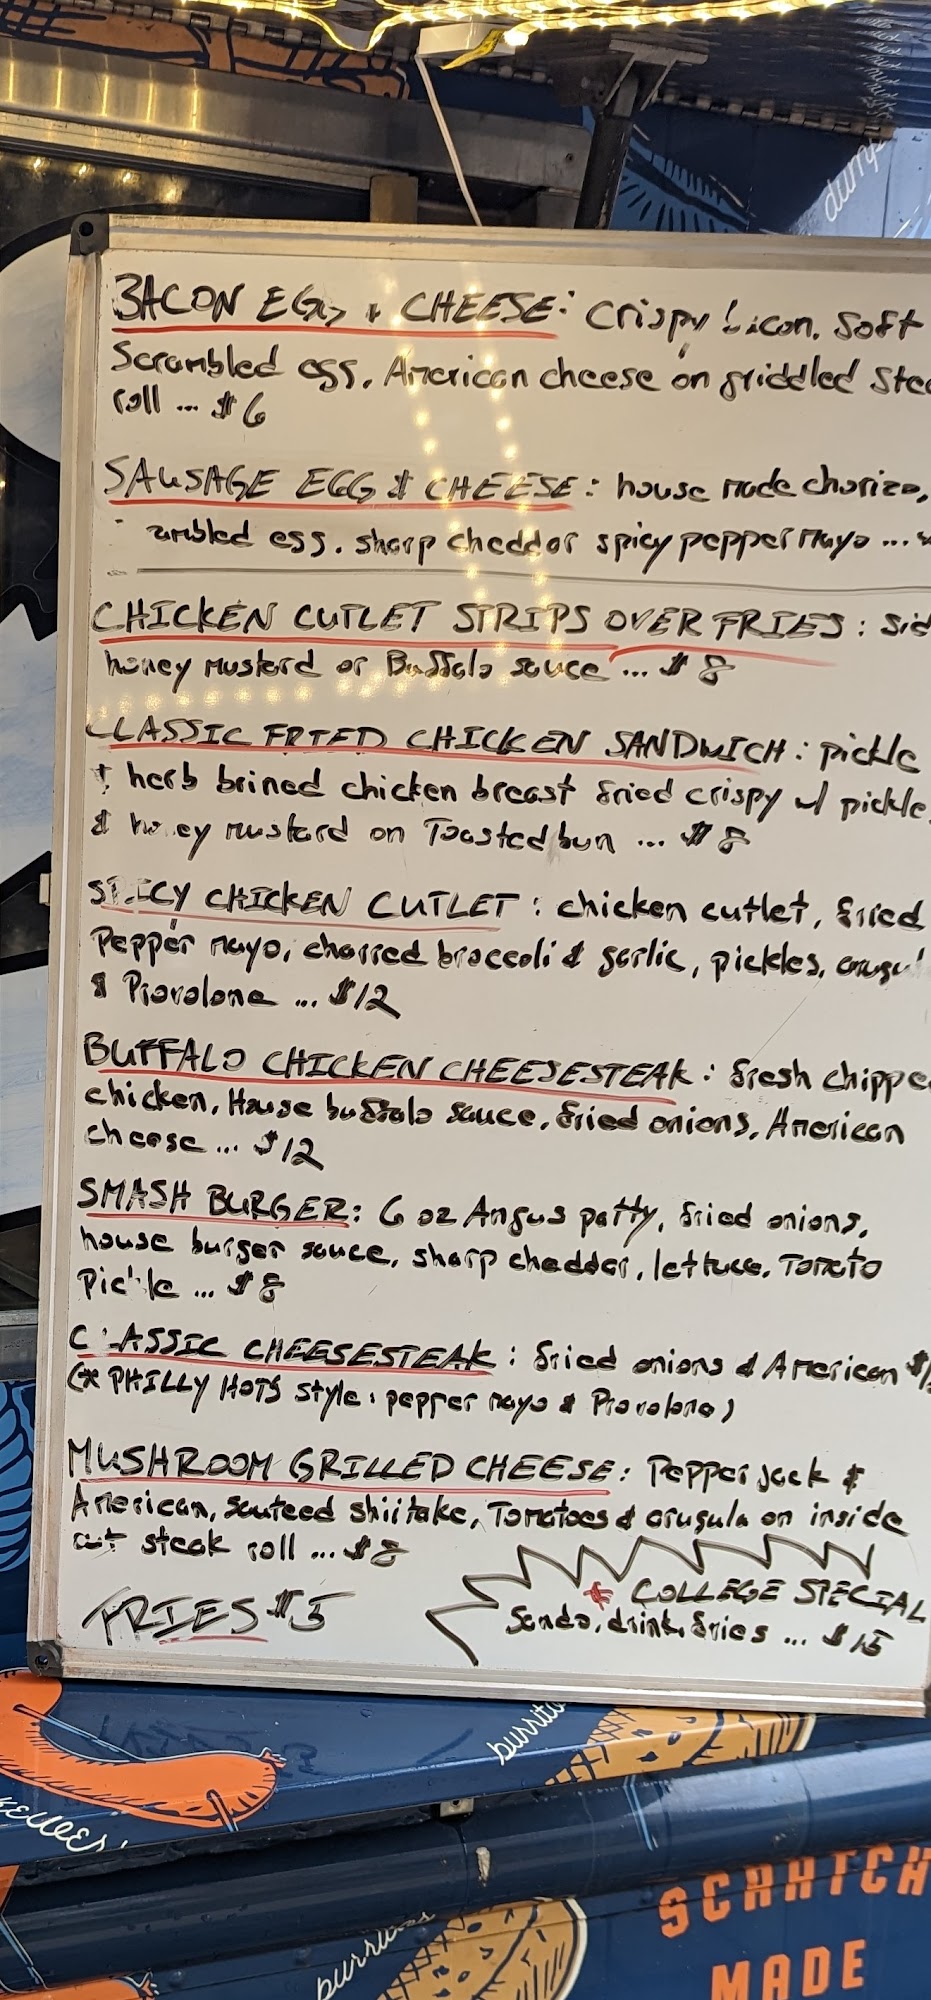 BACON EGG & CHEESE: Crispy bacon, Soft
Scrambled egg, American cheese on griddled Stea
roll ... $6
SAUSAGE EGG & CHEESE: house made chorizo,
ambled egg. sharp cheddar spicy pepper mayo ...
CHICKEN CUTLET STRIPS OVER FRIES: Sid
honey mustard or Buffalo sauce ... $8
CLASSIC FRIED CHICKEN SANDWICH: pickle
+ herb brined chicken breast fried crispy w/ pickle
& honey mustard on Toasted bun ... $8
SPICY CHICKEN CUTLET: chicken cutlet, fried
Pepper mayo, charred broccoli & garlic, pickles, arugul
& Provolone ... $12
BUFFALO CHICKEN CHEESESTEAK: fresh chippe
chicken, House buffalo sauce, fried onions, American
cheese ... $12
SMASH BURGER: 6 oz Angus patty, fried onions,
house burger sauce, sharp cheddar, lettuce, Tomato
Pickle ... $8
CLASSIC CHEESESTEAK: fried onions & American $1
(* PHILLY HOTS style: pepper mayo & Provolone)
MUSHROOM GRILLED CHEESE: Pepper jack &
American, sauteed shiitake, Tomatoes & arugula on inside
out steak roll ... $8
FRIES $5
* COLLEGE SPECIAL
Sando, drink, fries ... $15
burrito
SCRATCH
MADE